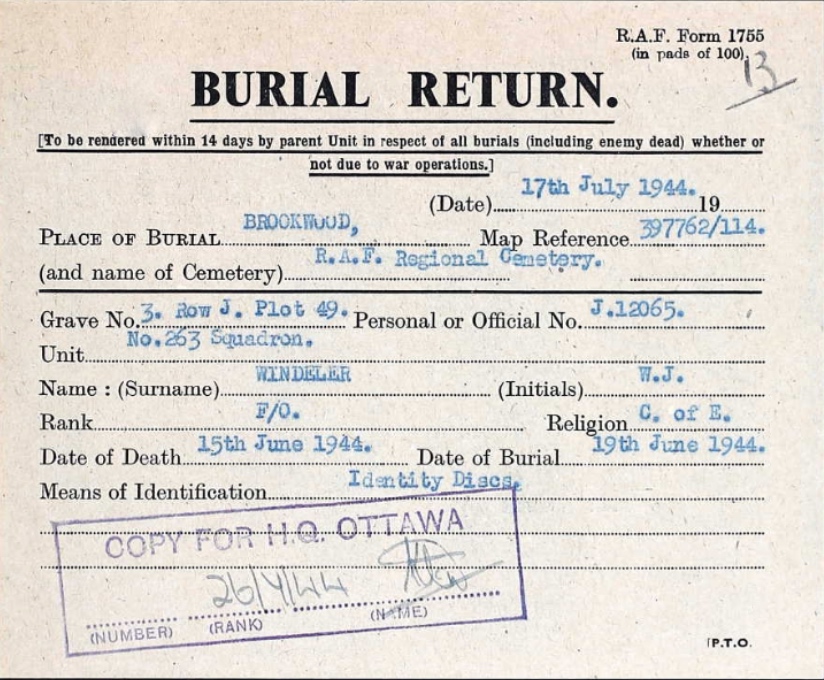 R.A.F. Form 1755
(in pads of 100).
13
BURIAL RETURN.
[To be rendered within 14 days by parent Unit in respect of all burials (including enemy dead) whether or
not due to war operations.]
(Date) 17th July 1944. 19
PLACE OF BURIAL BROOKWOOD, Map Reference 397762/114.
(and name of Cemetery) R.A.F. Regional Cemetery.
Grave No. 3. Row J. Plot 49. Personal or Official No. J.12065.
Unit No.263 Squadron.
Name : (Surname) WINDELER (Initials) W.J.
Rank F/O. Religion C. of E.
Date of Death 15th June 1944. Date of Burial 19th June 1944.
Means of Identification Identity Discs.
COPY FOR H.Q. OTTAWA
(NUMBER) (RANK) (NAME)
[P.T.O.